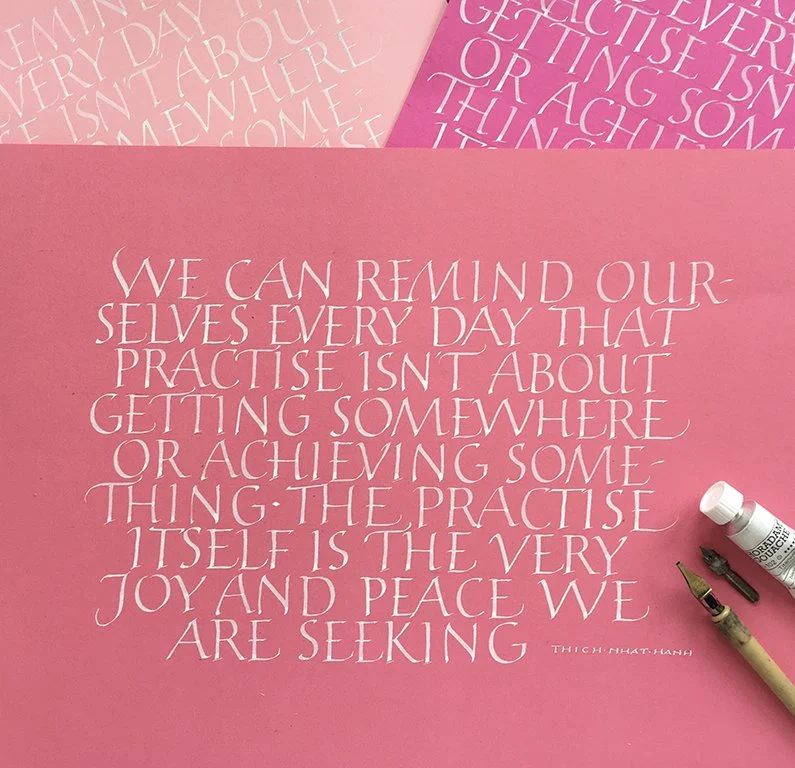 REMIND
EVERY DAY
ISN'T ABOUT
SE ISN'T SOMEWHERE
SOME-
EVERY
PRACTISE ISN
GETTING SOM
OR ACHIE
THING
WE CAN REMIND OUR-
SELVES EVERY DAY THAT
PRACTISE ISN'T ABOUT
GETTING SOMEWHERE
OR ACHIEVING SOME-
THING·THE PRACTISE
ITSELF IS THE VERY
JOY AND PEACE WE
ARE SEEKING
THICH·NHAT·HANH
GOUACHE